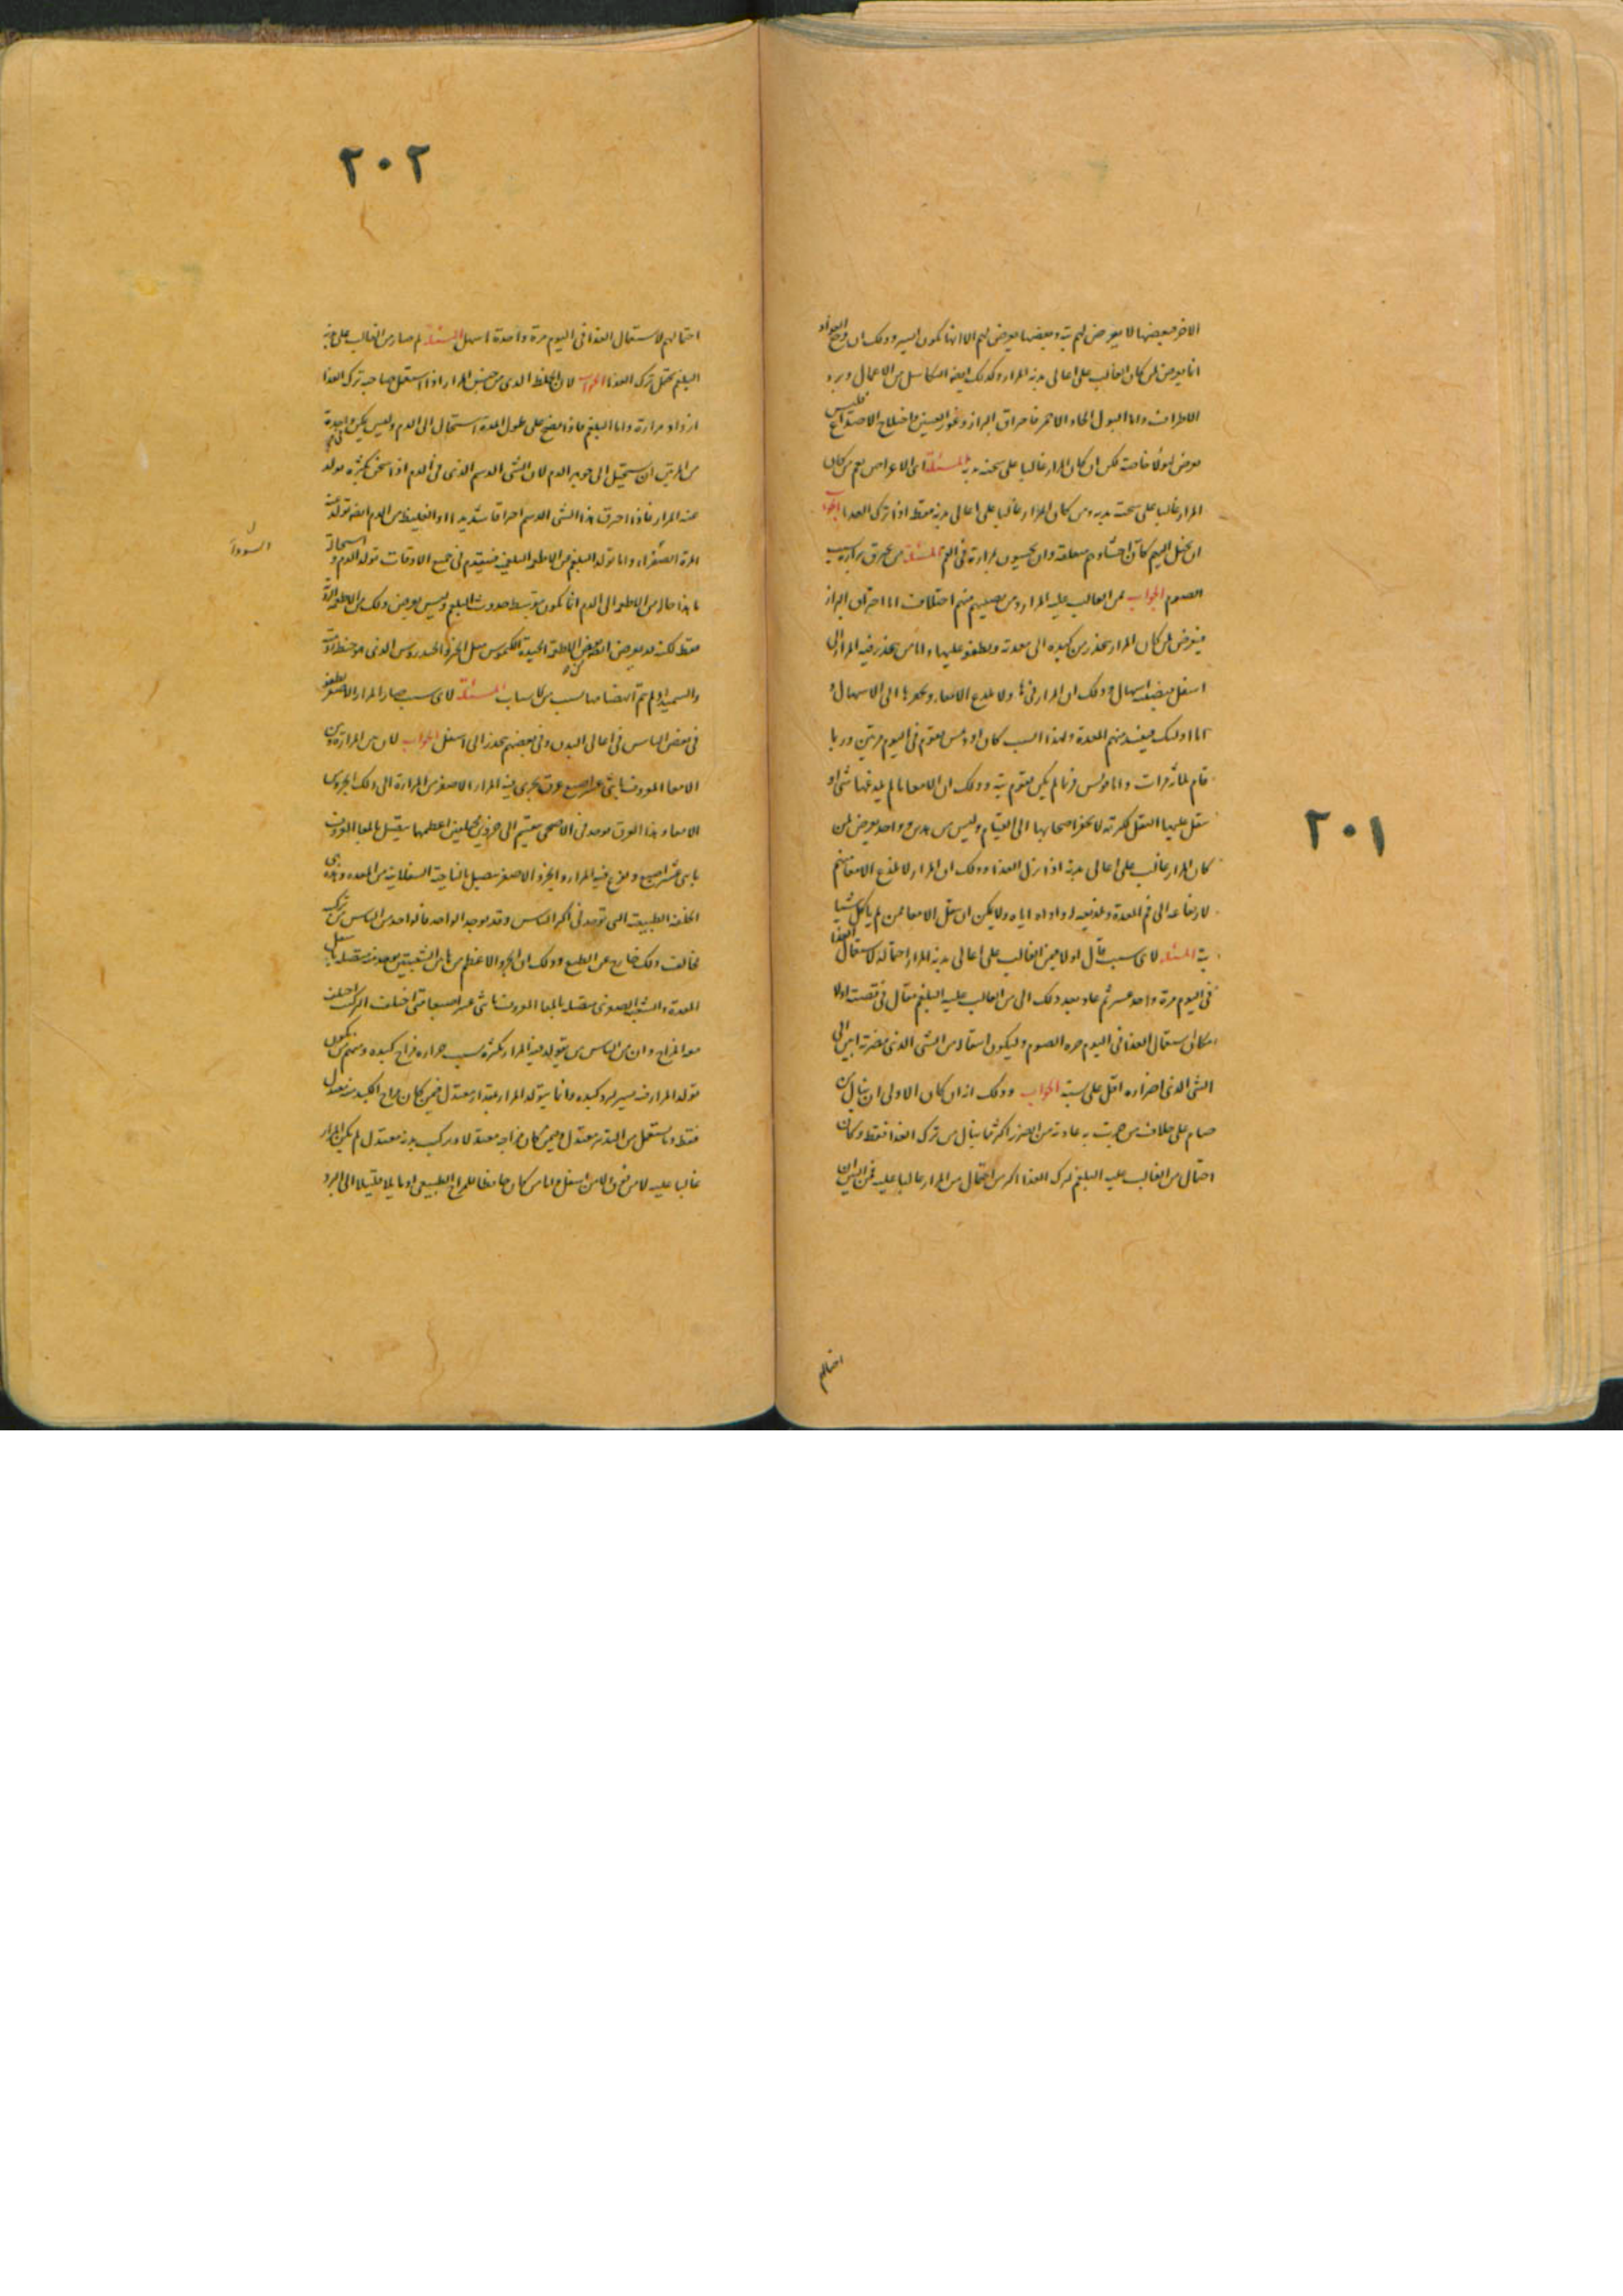 ٢٠١
الاخر فبعضها لا يعرض لهم بتة وبعضها يعرض لهم الا انها تكون ايسر وذلك ان وجع الفواد
انما يعرض لمن كان الغالب على اعالى بدنه المرار وكذلك ايضا التكاسل من الاعمال وبرد
الاطراف واما البول الحاد الاحمر فاحراق البراز وغور العينين واختلاج الاصداغ فليس
يعرض لهولا خاصة لكن ان كان المرار غالبا على سحنة بدنه المسئلة اى الاعراض يعم من كان
المرار غالبا على سحنة بدنه ومن كان المرار غالبا على اعالى بدنه فقط اذا ترك الغذا الجواب
ان يخيل اليهم كان احشاوهم معلقة وان يحسون مرارة فى الفم المسئلة من يحرق برازه بسبب
الصوم الجواب لمن الغالب عليه المرار ومن يصيبهم منهم اختلاف اما احتراق البراز
فيعرض لمن كان المرار ينحدر من كبده الى معدته ويطفو عليها واما من ينحدر فيه المرار الى
اسفل فيصيبه اسهال وذلك ان المرار فى
اما اولئك فيفسد منهم المعدة ولهذا السبب كان اودمس يقوم فى اليوم مرتين وربما
قام ثلاث مرات واما فولس فربما لم يكن يقوم بتة وذلك ان الامعا ما لم يلدغها شى او
يثقل عليها الثقل لكثرته لا يحفز اصحابها الى القيام وليس من هذين واحد يعرض لمن
كان المرار غالب على اعالى بدنه اذا ترك الغذا وذلك ان المرار لا يلذع الامعا منهم
لارتفاعه الى فم المعدة ولا يمكن ان يثقل الامعا ممن لم ياكل شيا
بتة المسئلة لاى سبب قال اولا فيمن الغالب على اعالى بدنه المرار احتماله لاستعمال الغذا
فى اليوم مرة واحدة عسر ثم عاد بعد ذلك الى من الغالب عليه البلغم فقال فى قصته اولا
مكان استعمال الغذا فى اليوم مرة الصوم وليكون انتقاله من الشى الذى مضرته ابين الى
الشى الذى اضراره اقل على نسبة الجواب وذلك انه ان كان الاولى ان ينال من
صام على خلاف من جرت به عادته من الضرر اكثر مما ينال من ترك الغذا فقط وكان
احتمال من الغالب عليه البلغم لترك الغذا اكثر من احتمال من المرار غالبا عليه فمن البين ان
احتمالهم
٢٠٢
احتمالهم لاستعمال الغذا فى اليوم مرة واحدة اسهل المسئلة لم صار من الغالب على بدنه
البلغم يحتمل ترك الغذا الجواب لان الخلط الذى من جنس المرار اذا استعمل صاحبه ترك الغذا
ازداد مرارة واما البلغم فاذا نضج على طول المدة استحال الى الدم وليس يمكن واحدة
من المرتين ان يستحيل الى جوهر الدم لان الشى الدسم الذى فى الدم اذا سخن بكثرة تولد
عنه المرار فاذا احرق هذا الشى الدسم احراقا شديدا والغليظ من الدم ايضا تولد عنه
المرة الصفراء واما تولد البلغم من الاطعمة البلغمية فيتقدم فى جميع الاوقات تولد الدم واستحالة
السوداء
ما هذا حاله من الاطعمة الى الدم انما يكون بتوسط حدوث البلغم وليس يعرض ذلك من الاطعمة
فقط لكنه قد يعرض ايضا من الاطعمة الجيدة الكيموس مثل الخبز الخندروس الذى هو حنطة
والسميد اذا لم يتم انهضامها بسبب من الاسباب المسئلة لاى سبب صار المرار الاصفر يطفو
فى بعض الناس فى اعالى البدن وفى بعضهم ينحدر الى اسفل الجواب لان بين المرارة وبين
الامعا المعروف باثنى عشر اصبع عرق يجرى فيه المرار الاصفر من المرارة الى ذلك الجزو من
الامعا وهذا العرق موجد فى الاصحى ينقسم الى جزوين مختلفين اعظمهما يتصل بالمعا المعروف
باثنى عشر اصبع ويفرغ فيه المرار والجزو الاصغر يتصل بالناحية السفلانية من المعدة وهذه هى
الخلقة الطبيعية التى توجد فى اكثر الناس وقد يوجد الواحد فالواحد من الناس من تركيب
مخالف ذلك خارج عن الطبع وذلك ان الجزو الاعظم من هاتين الشعبتين يوجد فيه متصلا باسفل
المعدة والشعبة الصغرى متصلة بالمعا المعروف باثنى عشر اصبعا فمتى اختلف التركيب اختلف
معه المزاج وان من الناس من يتولد فيه المرار بكثرة بسبب حرارة مزاج كبده ومنهم من يكون
تولد المرار فيه يسير لبرد كبده وانما يتولد المرار بمقدار معتدل فيمن كان مزاج الكبد منه معتدل
فقط وما يستعمل من التدبير معتدل فمن كان مزاجه معتدلا وتركيب بدنه معتدل لم يكن المرار
غالبا عليه لا من فوق ولا من اسفل واما من كان حافظا للمزاج الطبيعى او مايلا قليلا الى البرد